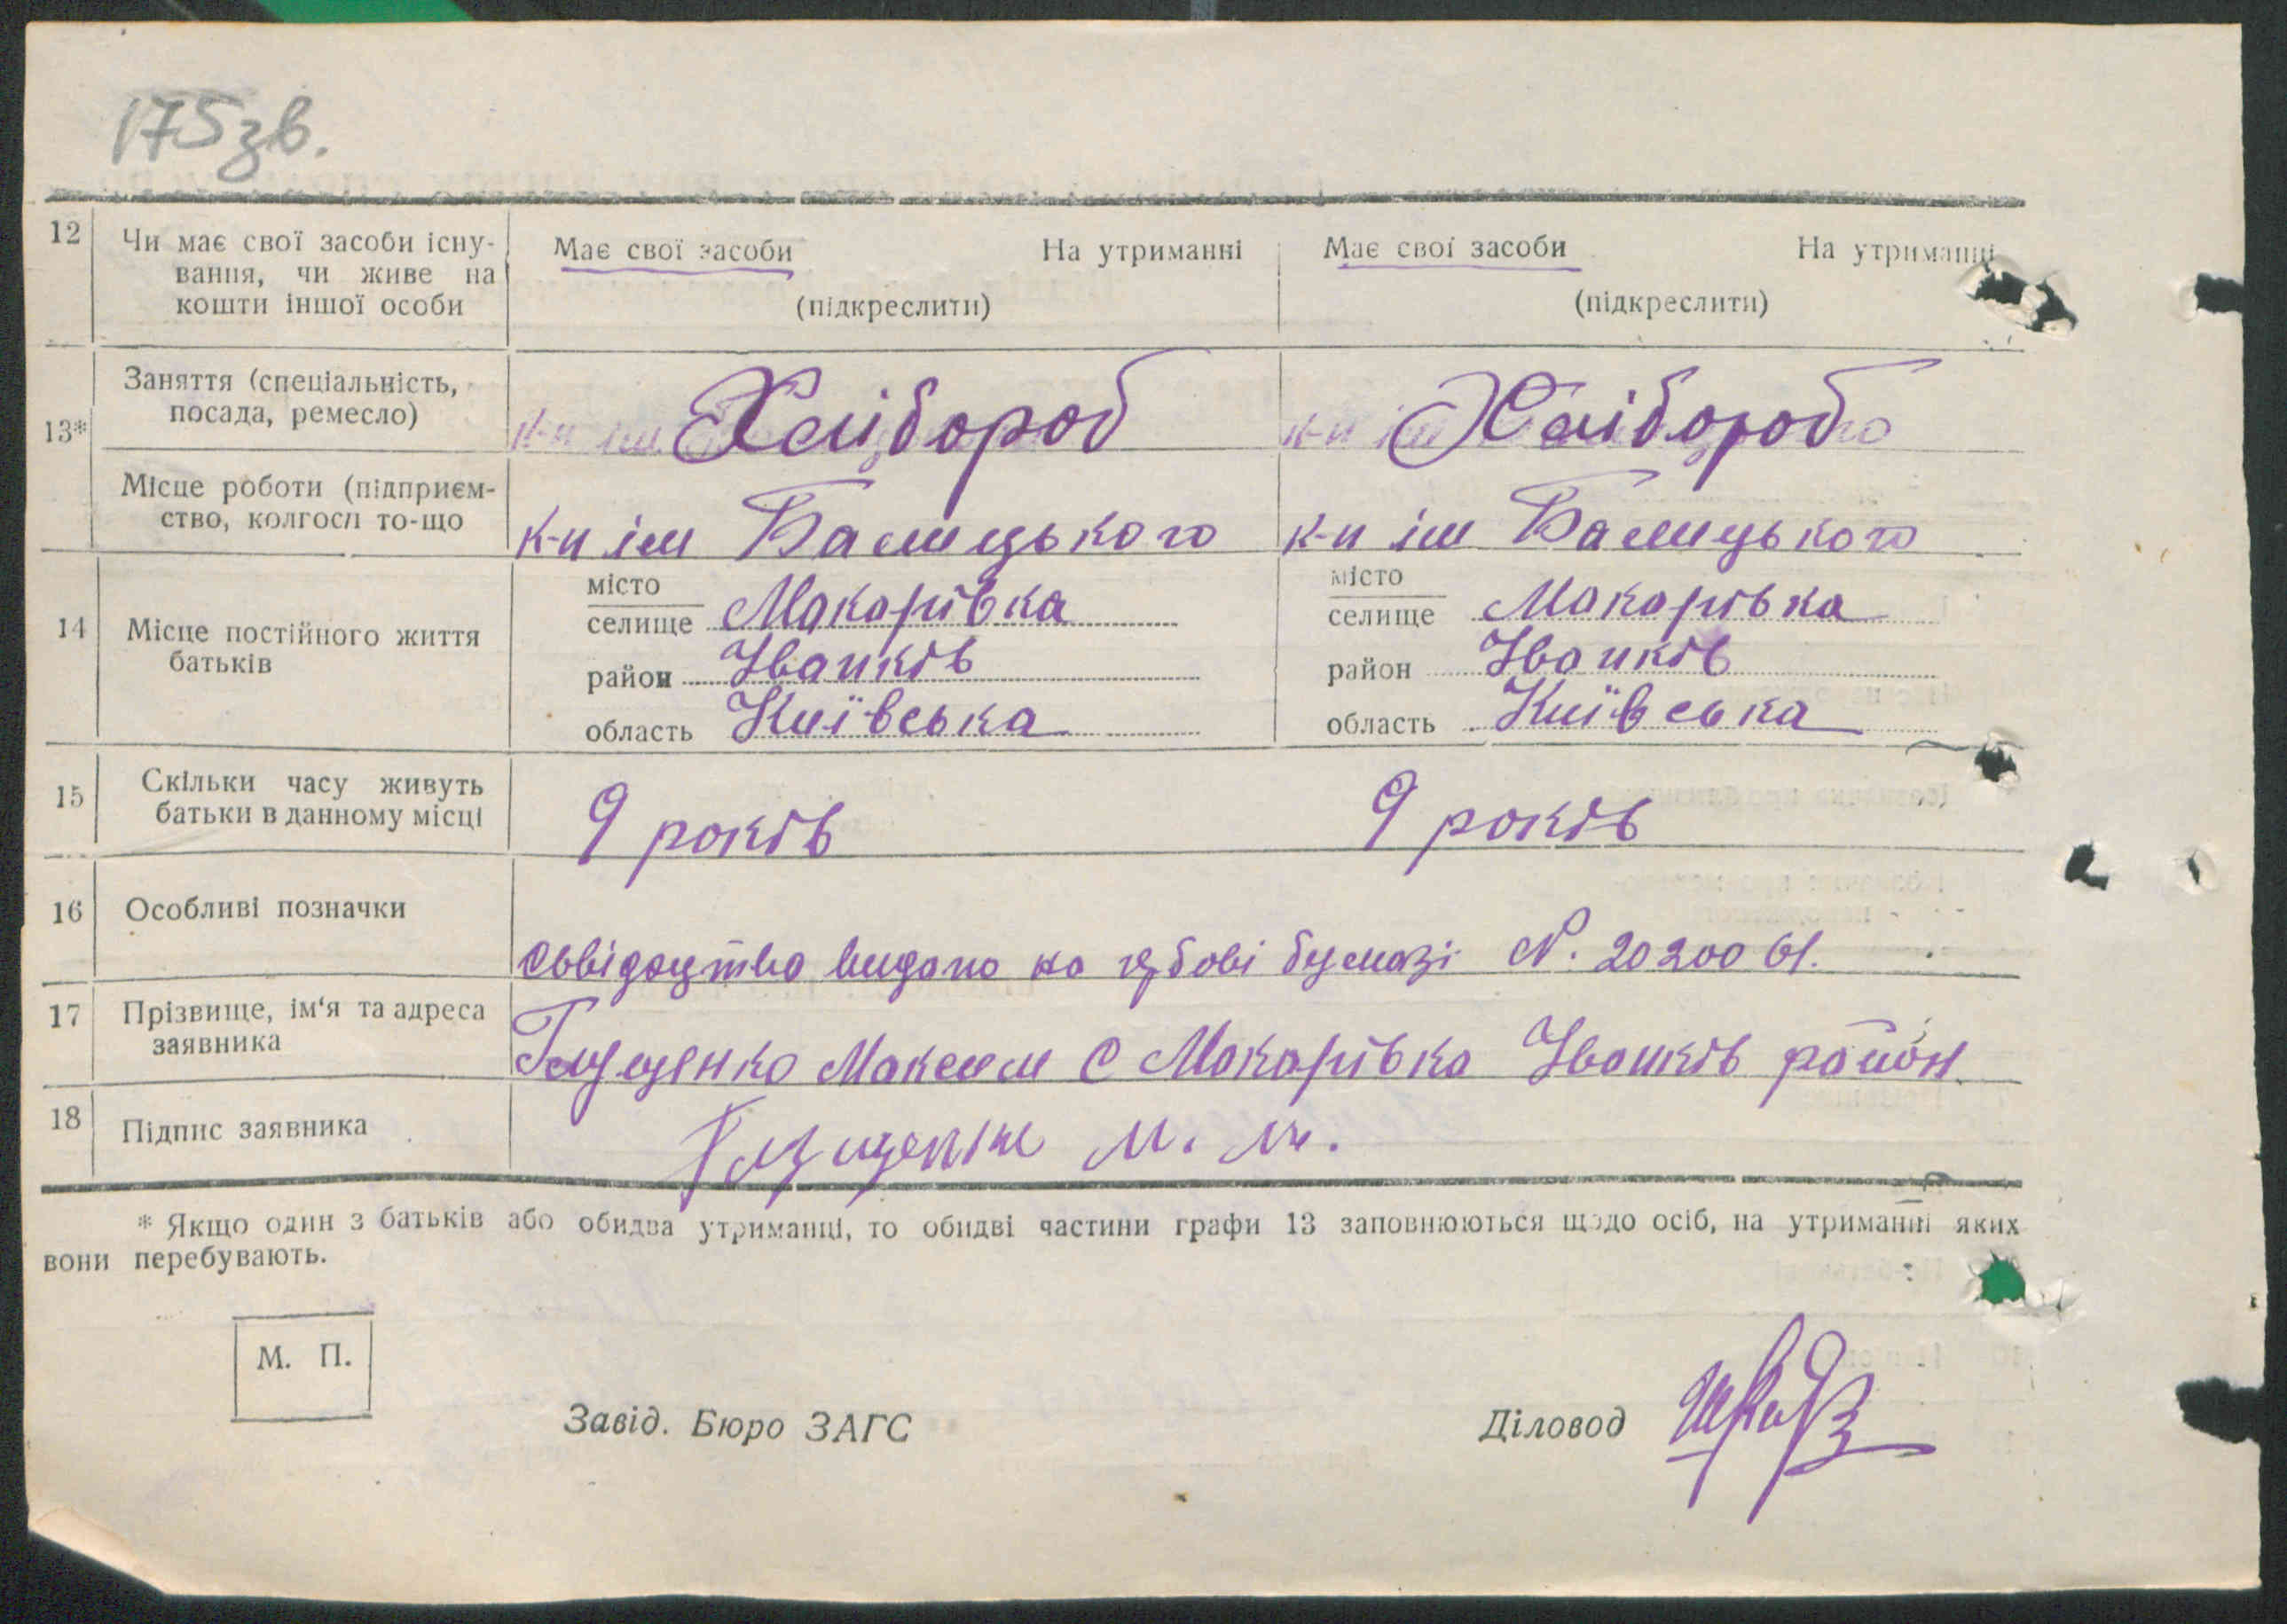 175зв.
12 Чи має свої засоби існу- Має свої засоби На утриманні Має свої засоби На утриманні
вання, чи живе на
кошти іншої особи (підкреслити) (підкреслити)
Заняття (спеціальність,
13* посада, ремесло) Хлібороб Хлібороб
Місце роботи (підприєм-
ство, колгосп то-що к-п ім Балицького к-п ім Балицького
14 Місце постійного життя місто місто
батьків селище Макарівка селище Макарівка
район Іванків район Іванків
область Київська область Київська
15 Скільки часу живуть
батьки в данному місці 9 років 9 років
16 Особливі позначки
Свідоцтво видано на бумазі N. 20200 61.
17 Прізвище, ім'я та адреса
заявника Глущенко Максим С Макарівка Іванків район
18 Підпис заявника Глущенко М. М.
* Якщо один з батьків або обидва утриманці, то обидві частини графи 13 заповнюються щодо осіб, на утриманні яких
вони перебувають.
М. П.
Завід. Бюро ЗАГС Діловод